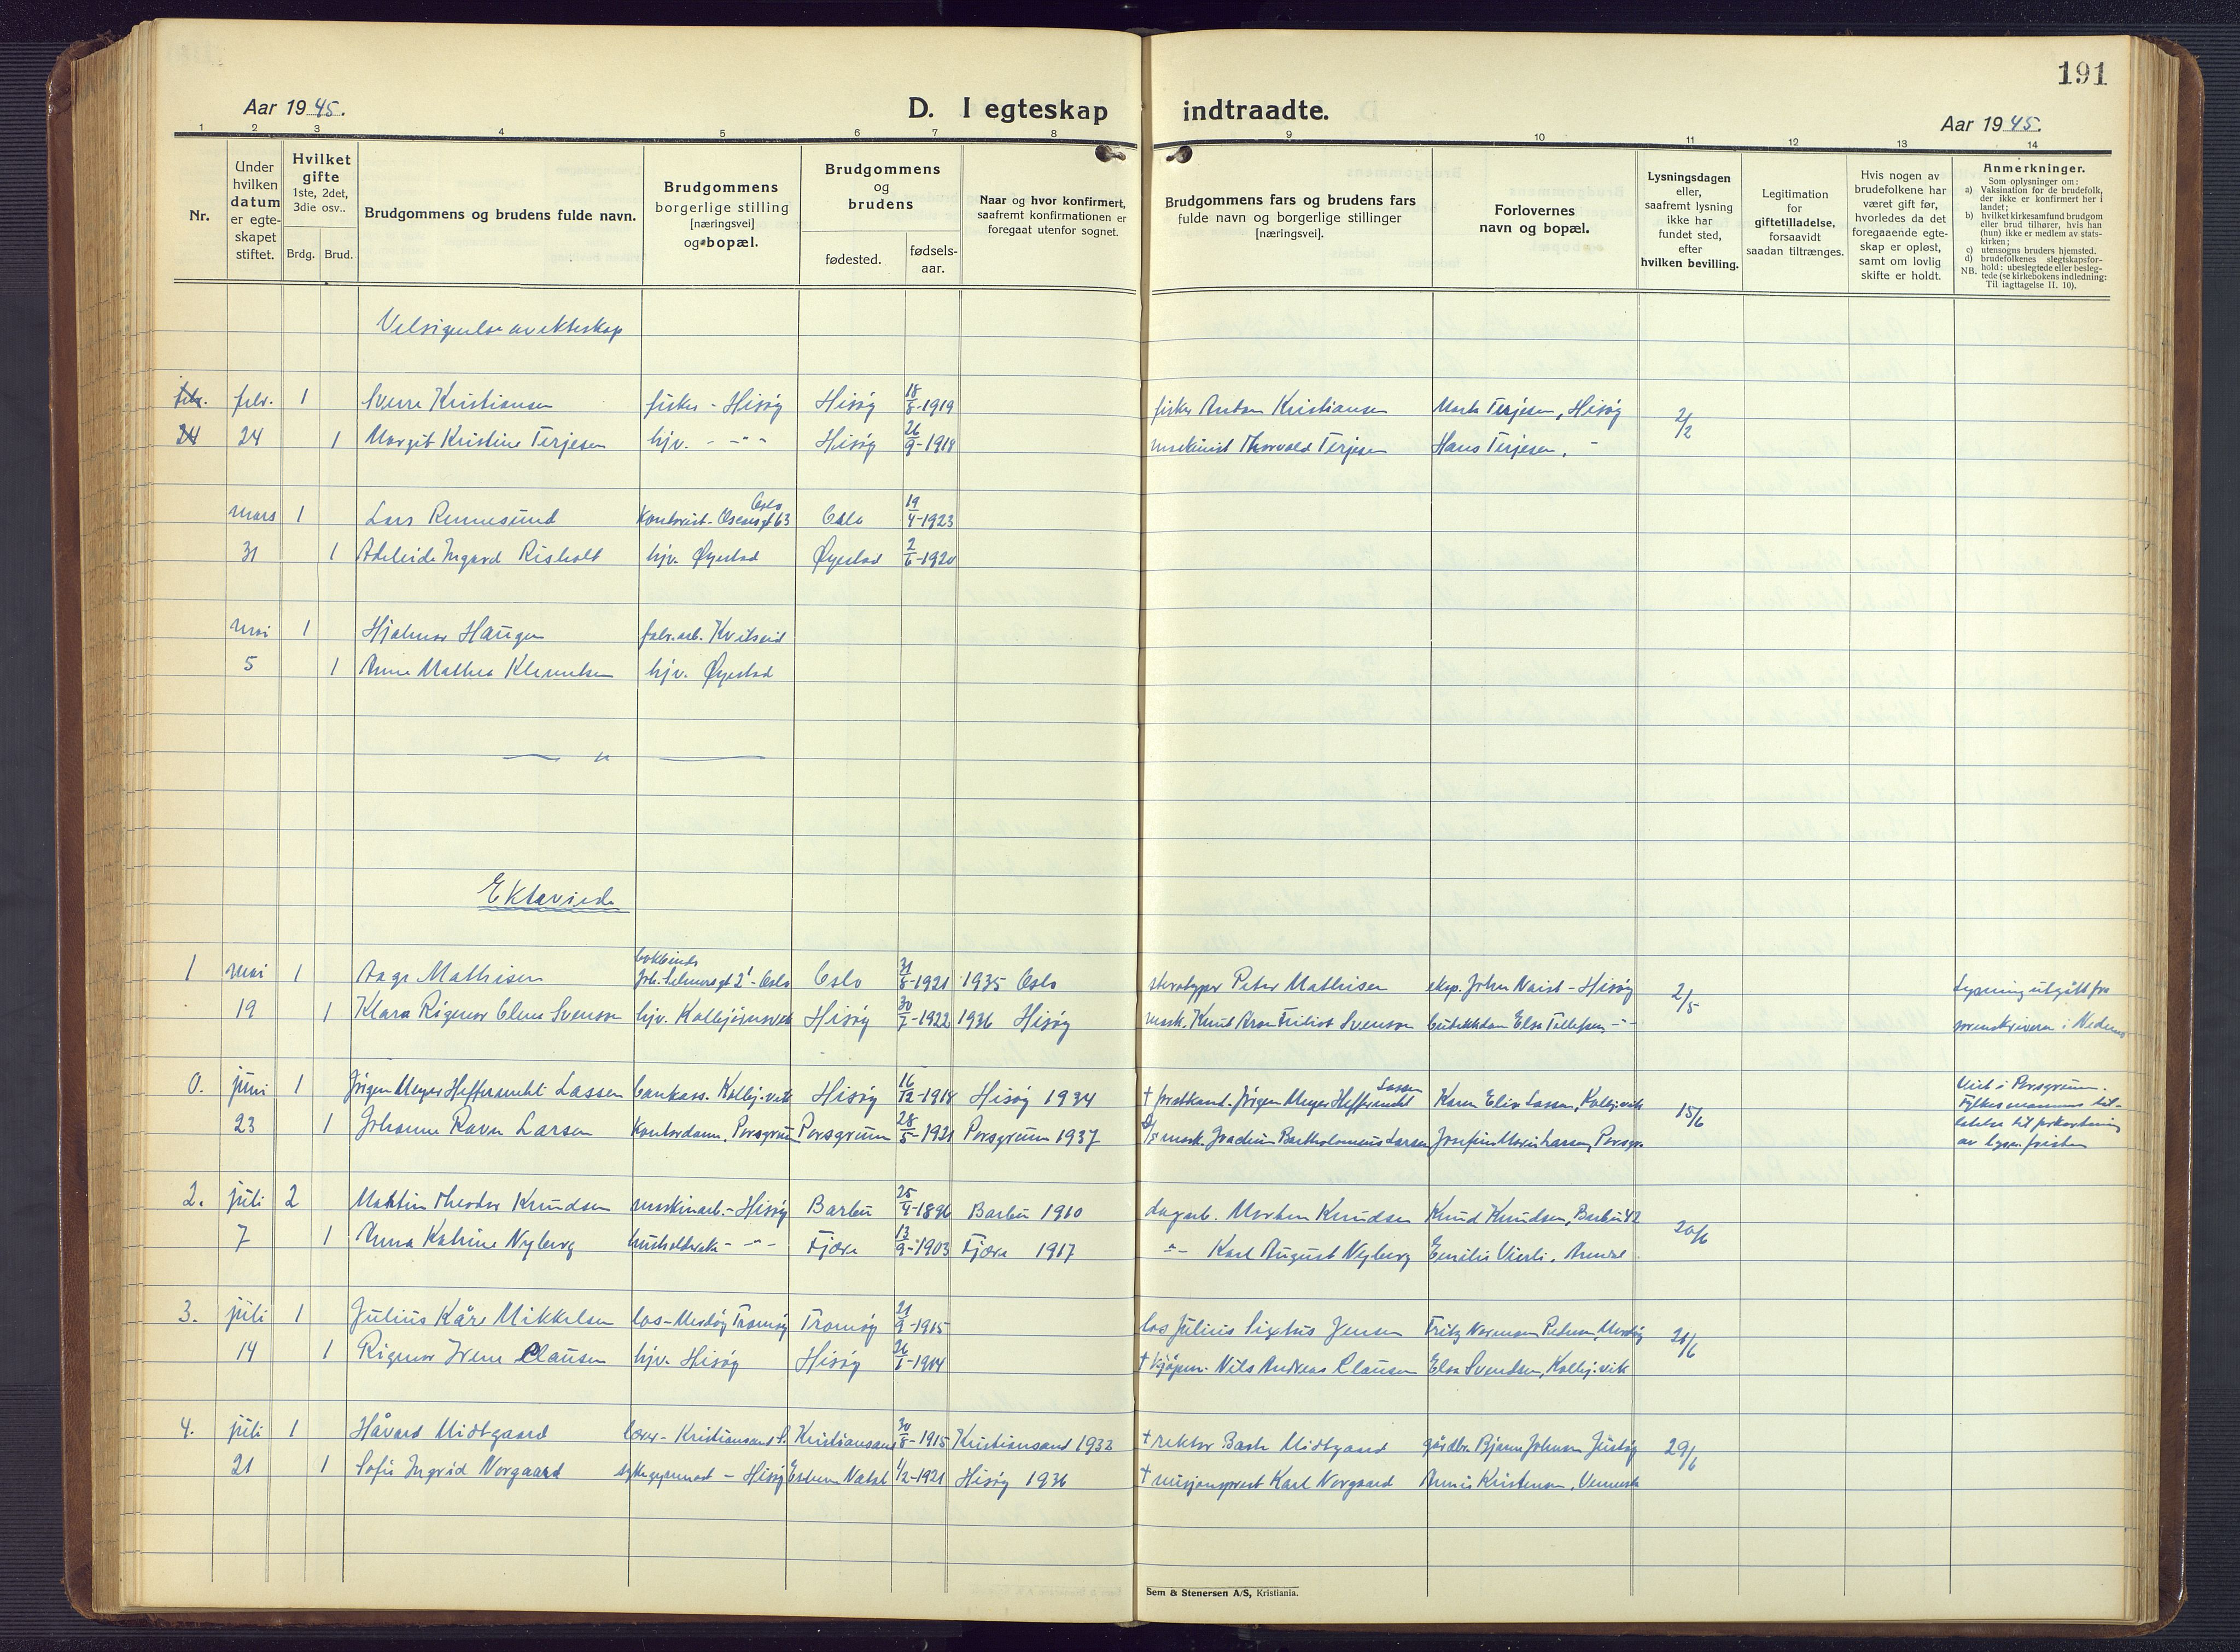 191
Aar 1945.
D. I egteskap indtraadte.
Aar 1945.
1 2 3 4 5 6 7 8 9 10 11 12 13 14
Nr.
Under hvilken datum er egteskapet stiftet.
Hvilket gifte 1ste, 2det, 3die osv..
Brdg. Brud.
Brudgommens og brudens fulde navn.
Brudgommens borgerlige stilling [næringsvei] og bopæl.
Brudgommens og brudens
fødested.
fødsels-aar.
Naar og hvor konfirmert, saafremt konfirmationen er foregaat utenfor sognet.
Brudgommens fars og brudens fars fulde navn og borgerlige stillinger [næringsvei].
Forlovernes navn og bopæl.
Lysningsdagen eller, saafremt lysning ikke har fundet sted, efter hvilken bevilling.
Legitimation for giftetilladelse, forsaavidt saadan tiltrænges.
Hvis nogen av brudefolkene har været gift før, hvorledes da det foregaaende egteskap er opløst, samt om lovlig skifte er holdt.
Anmerkninger.
Som oplysninger om:
a) Vaksination for de brudefolk, der ikke er konfirmert her i landet;
b) hvilket kirkesamfund brudgom eller brud tilhører, hvis han (hun) ikke er medlem av statskirken;
c) utensogns bruders hjemsted.
d) brudefolkenes slegtskapsforhold: ubeslegtede eller beslegtede (se kirkebokens indledning: Til iagttagelse II. 10).
NB.
Velsignelse av ekteskap
febr. febr. 1 Sverre Kristiansen fisker - Hisøy Hisøy 18/8-1919 fisker Anton Kristiansen Terjesen, Hisøy 2/2
24 24 1 Margit Kristine Terjesen hjv. - -"- Hisøy 26/9-1918 maskinist Thorvald Terjesen Hans Terjesen, -
mars 1 Lars Rennesund Kontorist - Osensgt 63 Oslo Oslo 19/4-1923
31 1 Adeleide Ingard Risholt hjv. Øyestad Øyestad 2/6-1920
mai 1 Hjalmar Haugen fabr.arb. Kvitseid
5 1 Anne Mathea Klemetsen hjv. Øyestad
— " —
Ektaviede
1 mai 1 Aage Mathisen bokbinder Joh. Selmersgt 2' - Oslo Oslo 31/8-1921 1935 Oslo sterotyper Peter Mathisen eksp. John Naist - Hisøy 2/5 Lysning utgått fra
19 1 Klara Rigmor Svenson hjv. Kolbjørnsvik Hisøy 30/7-1922 1936 Hisøy mask. Knut Aron Fritiof Svenson butikkdam Elsa Tellefsen, -"- sorenskriveren i Nedenes
0. juni 1 Jörgen Meyer Heffermehl Lassen bankass. Kolbj.vik Hisøy 16/12-1918 Hisøy 1934 † forstkand. Jörgen Meyer Heffermehl Lassen Karen Elise Lassen, Kolbj.vik 15/6 Viet i Porsgrunn.
Fylkesmannens til-
23 1 Johanne Ravn Larsen kontordame, Porsgrunn Porsgrunn 28/5-1921 Porsgrunn 1937 mask. Joachim Bartholomeus Larsen Larsen, Porsgr. latelse til forkortning
av lysn. fristen
2. juli 2 Martin Theodor Knudsen maskinarb. - Hisøy Barbu 25/4-1896 Barbu 1910 dagarb. Morten Knudsen Knud Knudsen, Barbu 42 20/6
7 1 Anna Katrine Nyberg husholderske - -"- Fjære 13/9-1903 Fjære 1917 -"- Karl August Nyberg Emilie Vierli, Arendal
3. juli 1 Julius Kåre Mikkelsen los - Merdøy Tromøy Tromøy 21/9-1915 los Julius Sixtus Jensen Fritz Normann Pedersen, Merdøy 21/6
14 1 Rigmor Irene Clausen hjv. Hisøy Hisøy 26/1-1914 † kjøpm. Nils Andreas Clausen Elsa Svendsen, Kolbj.vik
4. juli 1 Håvard Midtgaard lærer - Kristiansand S. Kristiansand 30/8-1915 Kristiansand 1932 † rektor Midtgaard gårdbr. Bjarne Johnsen Justøy 29/6
21 1 Sofie Ingrid Norgaard sykegymnast - Hisøy Eshowe Natal 4/2-1921 Hisøy 1936 † misjonsprest Karl Norgaard Kristensen, Vennesla
Sem & Stenersen A/S, Kristiania.